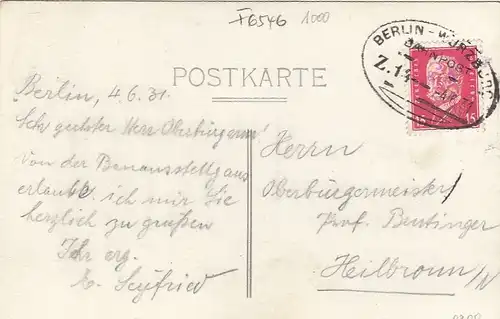 F6546 1000
BERLIN - WÜRZBURG
BAHNPOST
Z.1
15
POSTKARTE
Berlin, 4.6.31.
Sehr geehrter Herr Oberbürgerm!
von der Bauausstellg aus
erlaube ich mir Sie
herzlich zu grüßen
Ihr erg.
E. Seyfried
Herrn
Oberbürgermeister
Prof. Beutinger
Heilbronn a/N